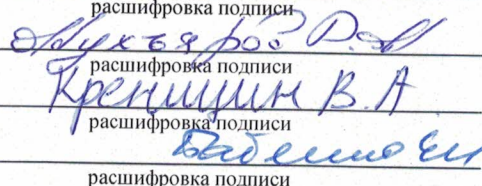 расшифровка подписи
Мухъяров Р.М
расшифровка подписи
Креницин В.А
расшифровка подписи
Бабенко Е.Н
расшифровка подписи